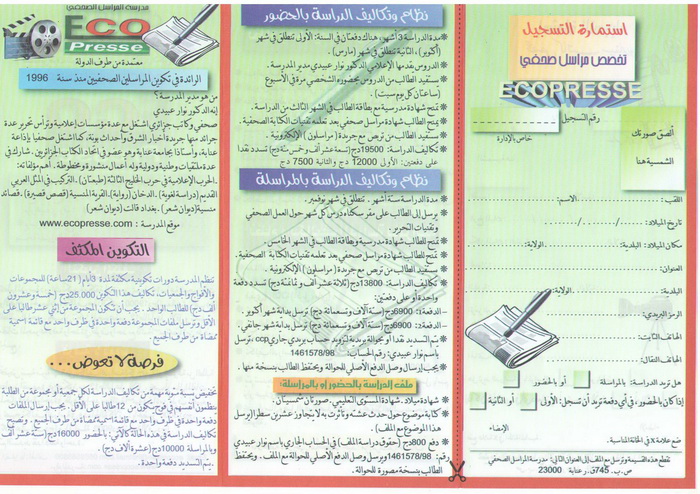 استمارة التسجيل
تخصص مراسل صحفي
ECOPRESSE
ألصق صورتك
الشمسية هنا
رقم التسجيل
خاص بالإدارة
اللقب:
الاسم:
تاريخ الميلاد:
مكان الميلاد: البلدية:
الولاية:
العنوان:
البلدية:
الولاية:
الرمز البريدي:
الهاتف الثابت:
الهاتف النقال:
هل تريد الدراسة: بالمراسلة
أو بالحضور
إذا كان بالحضور، في أي دفعة تريد أن تسجل: الأولى
أو الثانية
الإمضاء
ضع علامة x في الخانة المناسبة.
تقطع هذه القسيمة وترسل مع الملف إلى العنوان التالي: مدرسة المراسل الصحفي
ص.ب. 745 ق.ر عنابة 23000
نظام وتكاليف الدراسة بالحضور
مدة الدراسة 3 أشهر، هناك دفعتان في السنة: الأولى تنطلق في شهر
(أكتوبر)، الثانية تنطلق في شهر (مارس).
الدروس يقدمها الإعلامي الدكتور نوار عبيدي مدير المدرسة.
يستفيد الطالب من الدروس بحضوره الشخصي مرة في الأسبوع
(ساعتان كل يوم سبت).
تمنح شهادة مدرسية مع بطاقة الطالب في الشهر الثالث من الدراسة.
يمنح الطالب شهادة مراسل صحفي بعد تعلمه تقنيات الكتابة الصحفية.
يستفيد الطالب من تربص مع جريدة (مراسلون) الإلكترونية.
تكاليف الدراسة: 19500دج (تسعة عشر ألف وخمس مئة دج) تسدد نقدا
على دفعتين: الأولى 12000 دج والثانية 7500 دج
نظام وتكاليف الدراسة بالمراسلة
مدة الدراسة ستة أشهر. تنطلق في شهر نوفمبر.
يرسل إلى الطالب على مقر سكناه درس كل شهر حول العمل الصحفي
وتقنيات التحرير.
تمنح للطالب شهادة مدرسية وبطاقة الطالب في الشهر الخامس.
تمنح للطالب شهادة مراسل صحفي بعد تعلمه تقنيات الكتابة الصحفية.
يستفيد الطالب من تربص مع جريدة (مراسلون) الإلكترونية.
تكاليف الدراسة: 13800دج (ثلاثة عشر ألف وثمانمائة دج) تسدد دفعة
واحدة أو على دفعتين:
- الدفعة1: 6900دج (ستة آلاف وتسعمائة دج) ترسل بداية شهر أكتوبر.
- الدفعة2: 6900دج (ستة آلاف وتسعمائة دج) ترسل بداية شهر جانفي.
يتم التسديد نقدا أو بحوالة بريدية لرويد بحساب بريدي جاري ccp، ترسل
باسم نوار عبيدي: رقم الحساب: 1461578/98
يجب إرسال وصل الدفع الأصلي للحوالة ويحتفظ الطالب بنسخة منها.
ملف الدراسة بالحضور أو بالمراسلة:
شهادة ميلاد. شهادة المستوى التعليمي. صورتان شمسيتان.
كتابة موضوع حول حدث عشته وتأثرت به لا يتجاوز عشرين سطرا (يرسل
هذا الموضوع مع الملف).
دفع 800دج (حقوق دراسة الملف) في الحساب الجاري باسم نوار عبيدي
رقم: 1461578/98 ويرسل وصل الدفع الأصلي للحوالة مع الملف. ويحتفظ
الطالب بنسخة مصورة للحوالة.
مدرسة المراسل الصحفي
ECO
Presse
معتمدة من طرف الدولة
الرائدة في تكوين المراسلين الصحفيين منذ سنة 1996
من هو مدير المدرسة؟
إنه الدكتور نوار عبيدي
صحفي وكاتب جزائري اشتغل مع عدة مؤسسات إعلامية وترأس تحرير عدة
جرائد منها جريدة أخبار الشرق وأحداث بونة. كما اشتغل صحفيا بإذاعة
عنابة. وأستاذا بجامعة عنابة وهو عضو في اتحاد الكتاب الجزائريين. شارك في
عدة ملتقيات وطنية ودولية وله أعمال منشورة ومخطوطة. أهم مؤلفاته:
الحرب الإعلامية في حرب الخليج الثالثة (طبعتان). التركيب في المثل العربي
القديم (دراسة لغوية). الدخان (رواية). القربة المنسية (قصص قصيرة). قصائد
منسية (ديوان شعر). بغداد قالت (ديوان شعر)
موقع المدرسة: www.ecopresse.com
التكوين المكثف
تنظم المدرسة دورات تكوينية مكثفة لمدة 3أيام (21ساعة) للمجموعات
والأفواج والجمعيات، تكاليف هذا التكوين 25.000دج (خمسة وعشرون
ألف دج) للطالب الواحد. يجب أن تتكون المجموعة من إثني عشر طالبا على
الأقل وترسل ملفات المجموعة دفعة واحدة في ظرف واحد مع قائمة اسمية
ممضاة من طرف الجميع.
فرصة لا تعوض..
تخفيض بنسبة مئوية مهمة من تكاليف الدراسة لكل جمعية أو مجموعة من الطلبة
ينظمون أنفسهم في فوج يتكون من 12طالبا على الأقل. يجب إرسال الملفات
دفعة واحدة في ظرف واحد مع قائمة اسمية ممضاة من طرف الجميع. وتصبح
تكاليف الدراسة في هذه الحالة كالآتي: بالحضور 16000دج (ستة عشر ألف
وبالمراسلة 10000دج (عشرة آلاف دج).
.يتم التسديد دفعة واحدة.